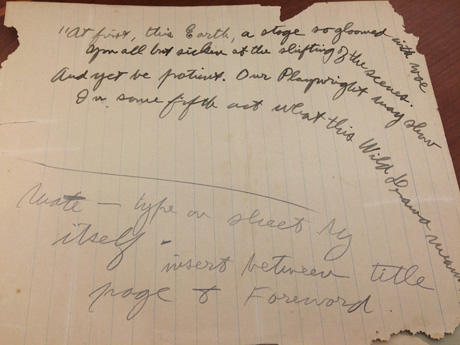 "At first, this Earth, a stage so gloomed with woe
You all but sicken at the shifting of the scenes.
And yet be patient. Our Playwright may show
In some fifth act what this Wild Drama means
Note - type on sheet by
itself -
insert between title
page & Foreword.